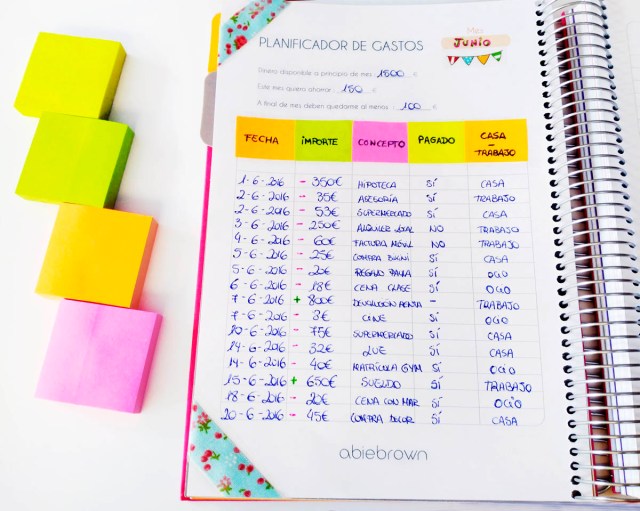 PLANIFICADOR DE GASTOS
Mes
JUNIO
Dinero disponible a principio de mes: 1500 €
Este mes quiero ahorrar: 150 €
A final de mes deben quedarme al menos: 100 €
FECHA IMPORTE CONCEPTO PAGADO CASA - TRABAJO
1-6-2016 - 350€ HIPOTECA SÍ CASA
2-6-2016 - 35€ ASESORÍA SÍ TRABAJO
2-6-2016 - 53€ SUPERMERCADO SÍ CASA
3-6-2016 - 250€ ALQUILER LOCAL NO TRABAJO
4-6-2016 - 60€ FACTURA MÓVIL NO TRABAJO
5-6-2016 - 25€ COMPRA BIKINI SÍ CASA
5-6-2016 - 20€ REGALO PAULA SÍ OCIO
6-6-2016 - 18€ CENA CLASE SÍ OCIO
7-6-2016 + 800€ DEVOLUCIÓN RENTA - TRABAJO
7-6-2016 - 3€ CINE SÍ OCIO
10-6-2016 - 75€ SUPERMERCADO SÍ CASA
14-6-2016 - 32€ LUZ SÍ CASA
14-6-2016 - 40€ MATRÍCULA GYM SÍ OCIO
15-6-2016 + 650€ SUELDO SÍ TRABAJO
18-6-2016 - 20€ CENA CON MAR SÍ OCIO
20-6-2016 - 45€ COMPRA DECOR SÍ CASA
abiebrown